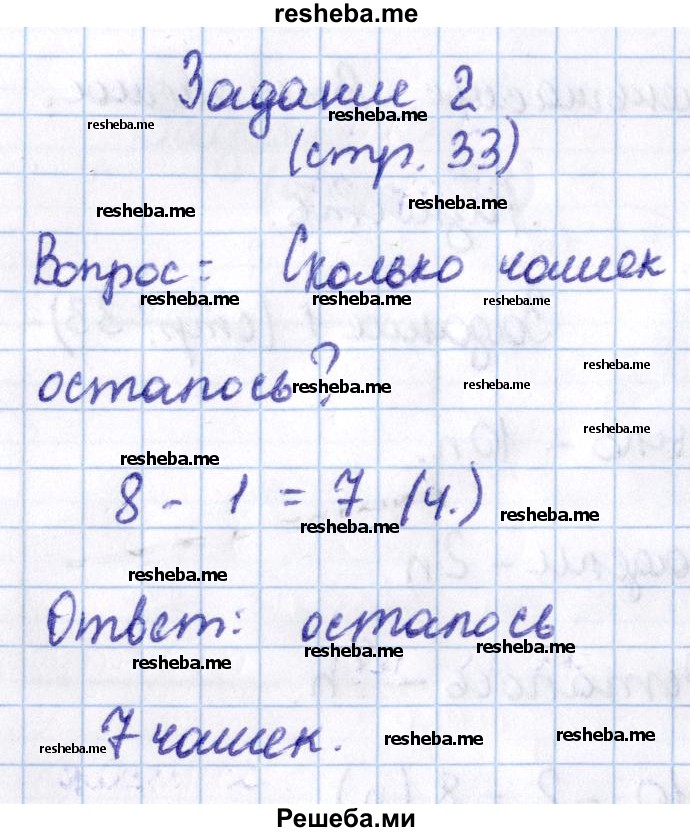 resheba.me
Задание 2
resheba.me resheba.me
(стр. 33)
resheba.me resheba.me
Вопрос: Сколько чашек
resheba.me resheba.me resheba.me
resheba.me
осталось?
resheba.me resheba.me
resheba.me
resheba.me
8 - 1 = 7 (ч.)
resheba.me resheba.me
resheba.me
Ответ: осталось
resheba.me resheba.me resheba.me
7 чашек.
resheba.me resheba.me resheba.me
Решеба.ми